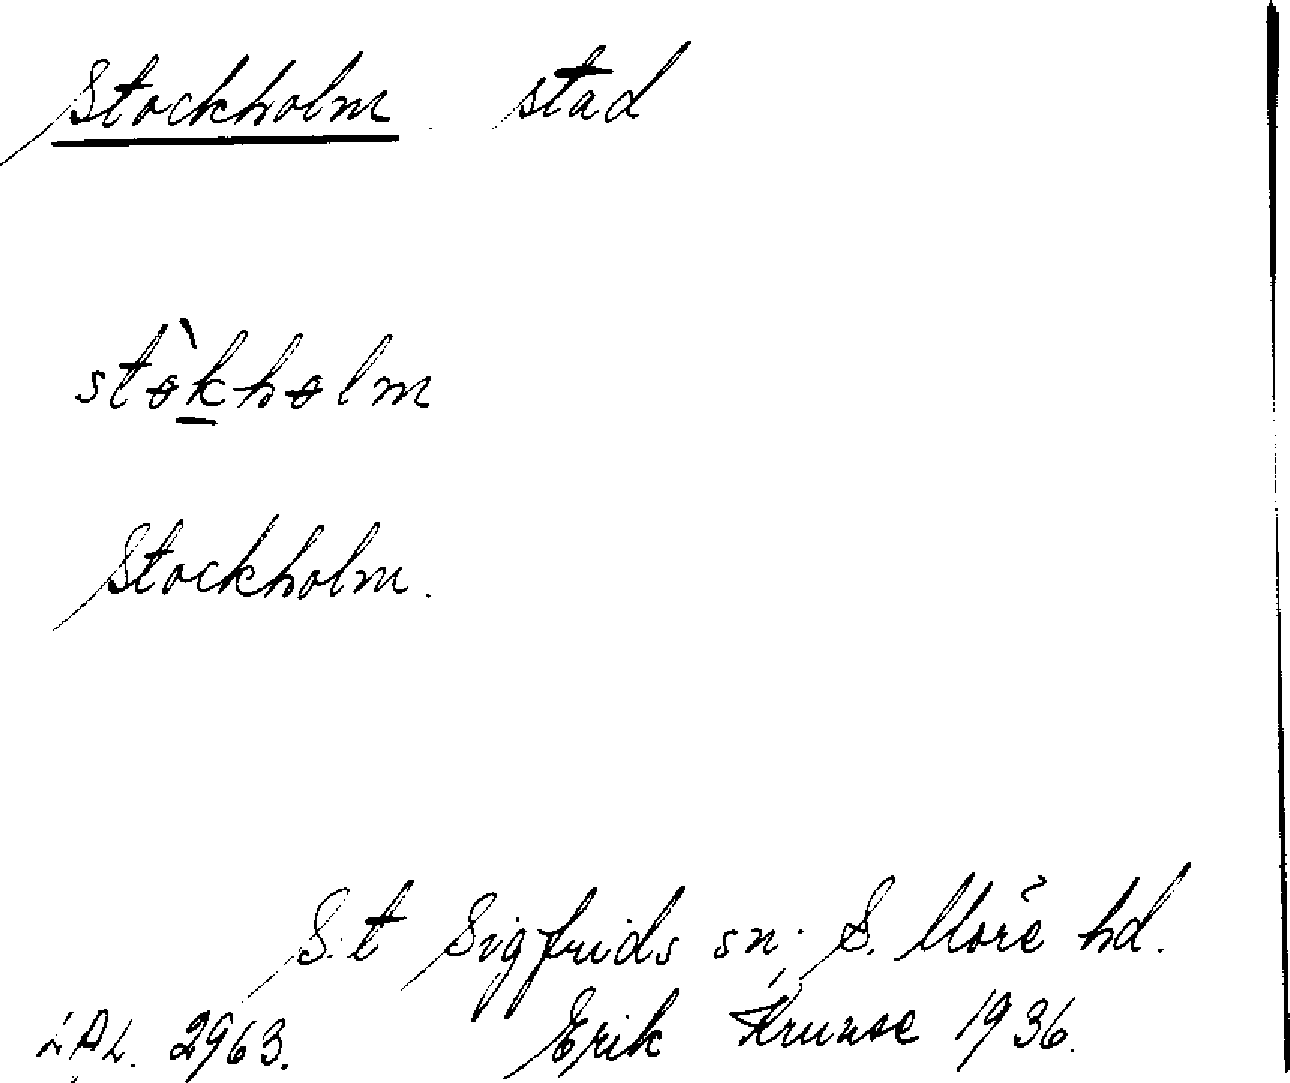 Stockholm stad
stòkholm
Stockholm.
S:t Sigfrids sn. S. Möre hd.
LAL. 2963. Erik Kruuse 1936.